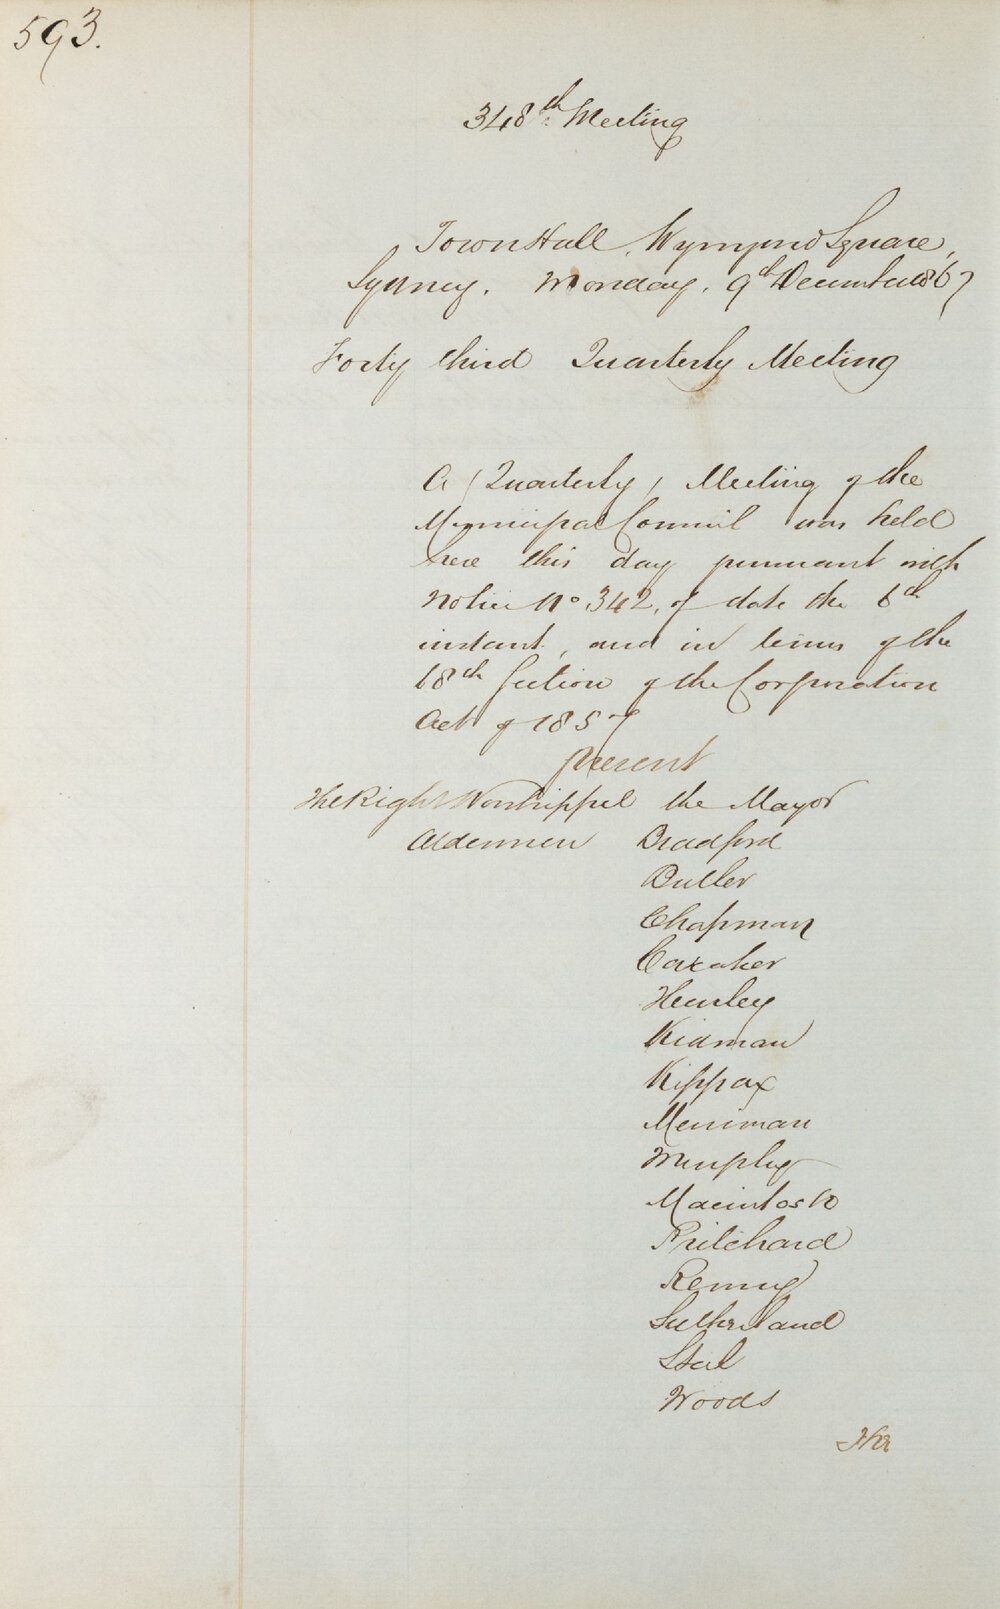 593.
348th Meeting
Town Hall, Wynyard Square,
Sydney. Monday, 9th December 1867
Forty third Quarterly Meeting
A (Quarterly) Meeting of the
Municipal Council was held
here this day pursuant with
Notice No 342, of date the 6th
instant, and in terms of the
18th Section of the Corporation
Act of 1857
Present
The Right Worshippful the Mayor
Aldermen Bradford
Butler
Chapman
Caraher
Hurley
Kidman
Kippax
Merriman
Murphy
Macintosh
Pritchard
Renny
Sutherland
Steel
Woods
The